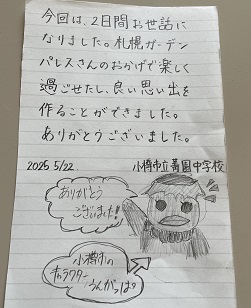 今回は、2日間お世話に
なりました。札幌ガーデン
パレスさんのおかげで楽しく
過ごせたし、良い思い出を
作ることができました。
ありがとうございました。
2025 5/22 小樽市立菁園中学校
ありがとう
ございました!
小樽市の
キャラクター
うんがっぱ